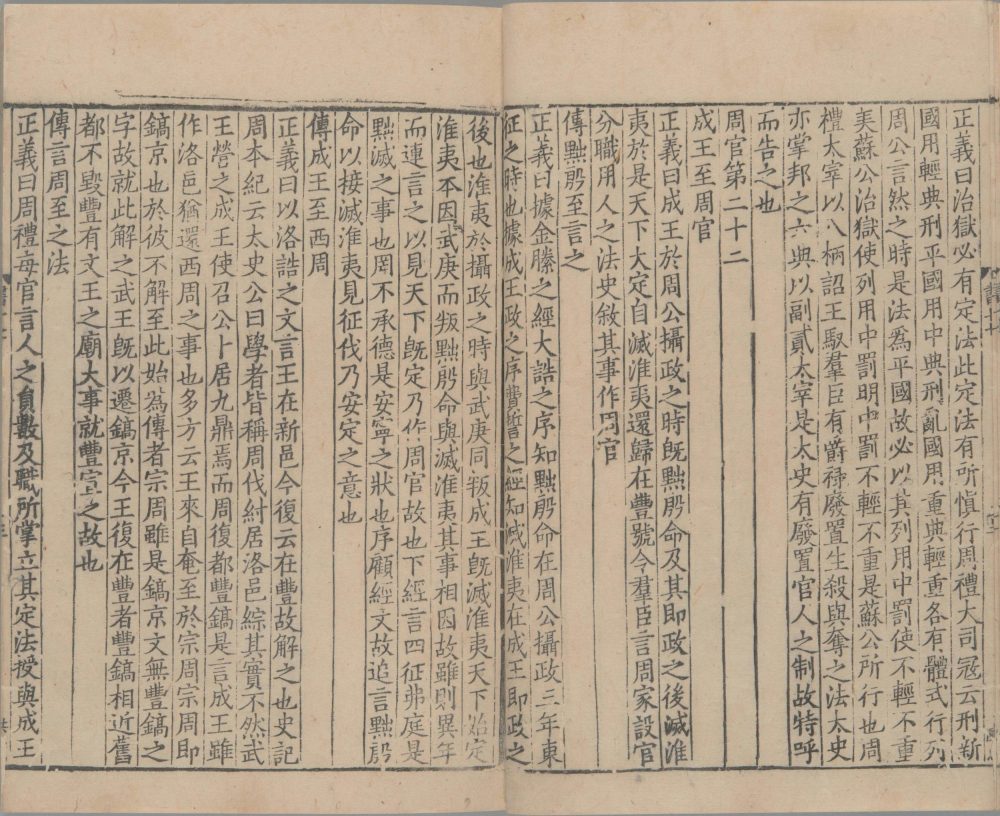 正義曰治獄必有定法此定法有所慎行周禮大司寇云刑新
國用輕典刑平國用中典刑亂國用重典輕重各有體式行列
周公言然之時是法爲平國故必以其列用中罰使不輕不重
美蘇公治獄使列用中罰明中罰不輕不重是蘇公所行也周
禮太宰以八柄詔王馭羣臣有爵祿廢置生殺與奪之法太史
亦掌邦之六典以副貳太宰是太史有廢置官人之制故特呼
而告之也
周官第二十二
成王至周官
正義曰成王於周公攝政之時旣黜殷命及其即政之後滅淮
夷於是天下大定自滅淮夷還歸在豐號令羣臣言周家設官
分職用人之法史敘其事作周官
傳黜殷至言之
正義曰據金縢之經大誥之序知黜殷命在周公攝政三年東
征之時也據成王政之序費誓之經知滅淮夷在成王即政之
後也淮夷於攝政之時與武庚同叛成王旣滅淮夷天下始定
淮夷本因武庚而叛黜殷命與滅淮夷其事相因故雖則異年
而連言之以見天下旣定乃作周官故也下經言四征弗庭是
黜滅之事也罔不承德是安寧之狀也序顧經文故追言黜殷
命以接滅淮夷見征伐乃安定之意也
傳成王至西周
正義曰以洛誥之文言王在新邑今復云在豐故解之也史記
周本紀云太史公曰學者皆稱周伐紂居洛邑綜其實不然武
王營之成王使召公卜居九鼎焉而周復都豐鎬是言成王雖
作洛邑猶還西周之事也多方云王來自奄至於宗周宗周即
鎬京也於彼不解至此始為傳者宗周雖是鎬京文無豐鎬之
字故就此解之武王旣以遷鎬京今王復在豐者豐鎬相近舊
都不毀豐有文王之廟大事就豐宣之故也
傳言周至之法
正義曰周禮每官言人之員數及職所掌立其定法授與成王